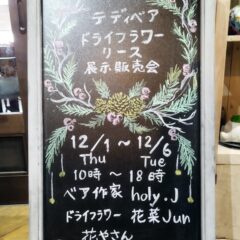 テディベア
ドライフラワー
リース
展示販売会
12/1 〜 12/6
Thu Tue
10時〜18時
ベア作家 holy.J
ドライフラワー 花菜Jun
花やさん